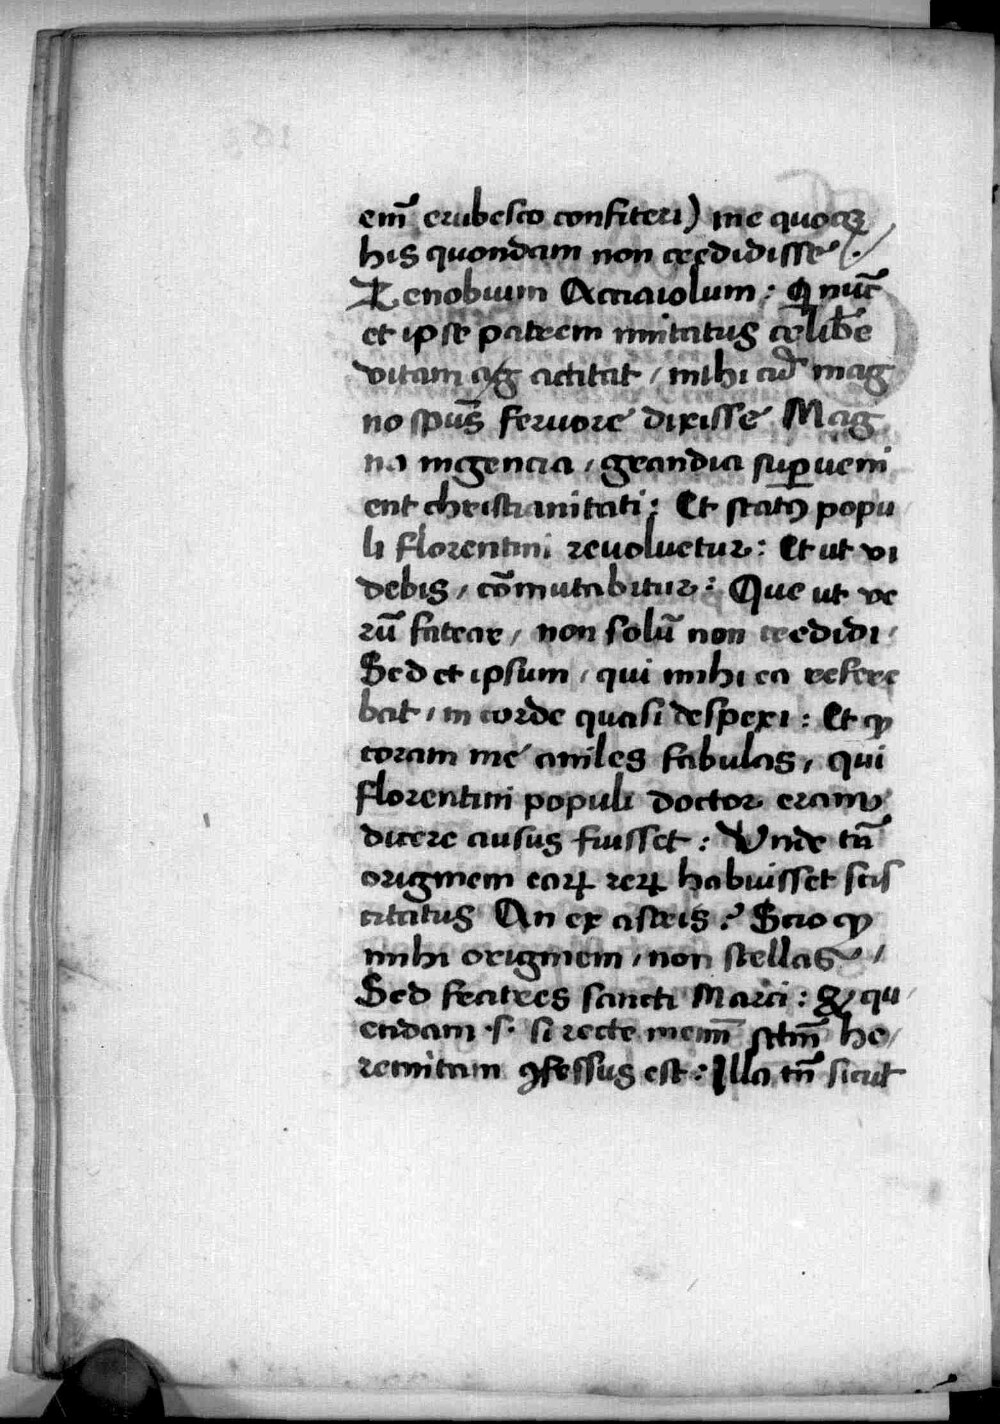 em̄ erubesco confiteri) me quoqꝫ
his quondam non credidisse /.
Zenobium Acciaiolum : Qi nūc
et ipse patrem imitatus celibē
vitam actitat / mihi cū mag
no spūs fervore dixisse Mag
na ingencia / grandia suꝑveni
ent christianitati : Et statꝰ popu
li florentini revolvetur : Et ut vi
debis / cōmutabitur : Que ut ve
rū fatear / non solū non credidi /
Sed et ipsum / qui mihi ea refere
bat / in corde quasi despexi : Et ꝙ
coram me aniles fabulas / qui
florentini populi doctor eram /
dicere ausus fuisset : Unde tn̄
originem eoꝝ reꝝ habuisset scis
citatus An ex astris ? Scio ꝙ
mihi originem / non stellas /
Sed fratres sancti Marci : & qu
endam .s. si recte memī sctm̄ he/
remitam ꝯfessus est : Illa tn̄ sicut